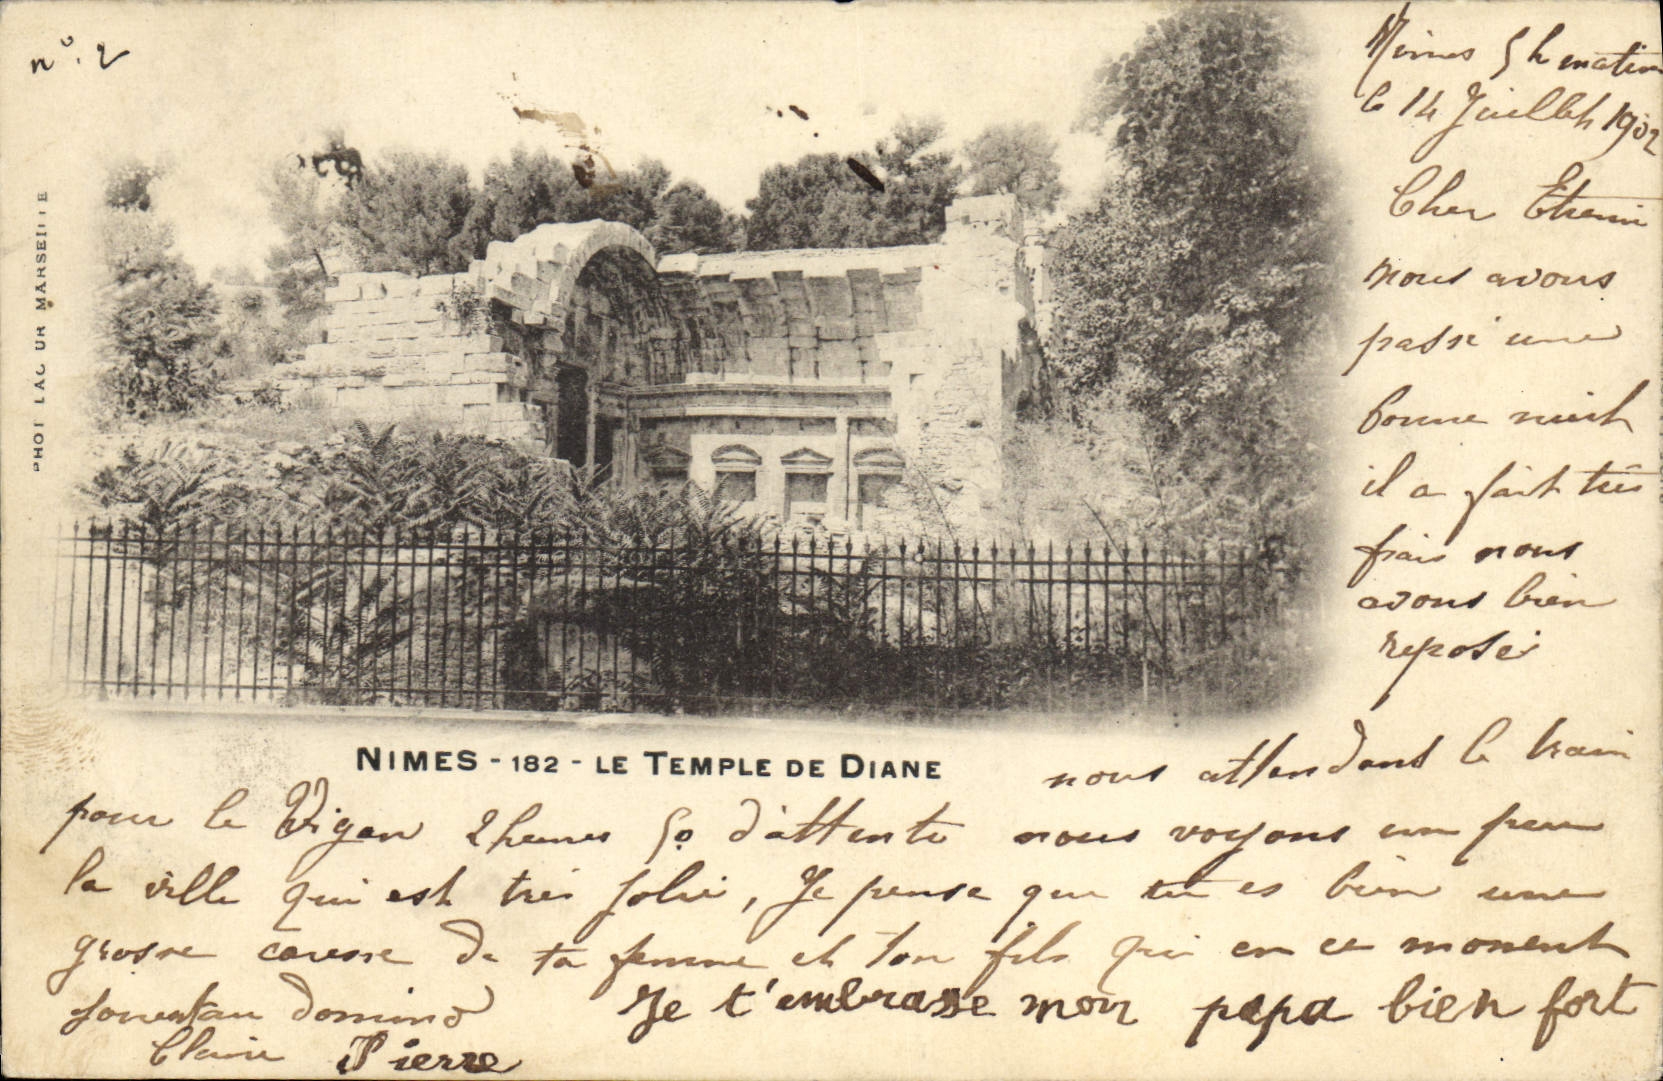 n° 2
Nimes 5 h matin
le 14 Juillet 1902
Cher Etienne
nous avons
passé une
bonne nuit
il a fait très
frais nous
avons bien
reposés
PHOT LACOUR MARSEILLE
NIMES - 182 - LE TEMPLE DE DIANE
nous attendons le train
pour le Vigan 2 heures 50 d'attente nous voyons un peu
la ville qui est très jolie, Je pense que tu es bien une
grosse caresse de ta femme et ton fils qui en ce moment
joue au domino Je t'embrasse mon papa bien fort
Claire Pierre